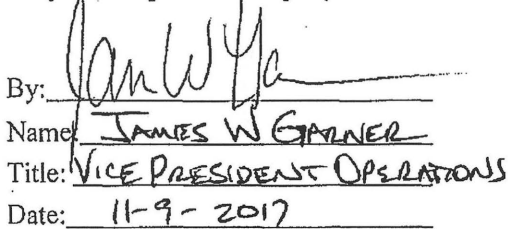 By:
Name: JAMES W GARNER
Title: VICE PRESIDENT OPERATIONS
Date: 11-9-2017